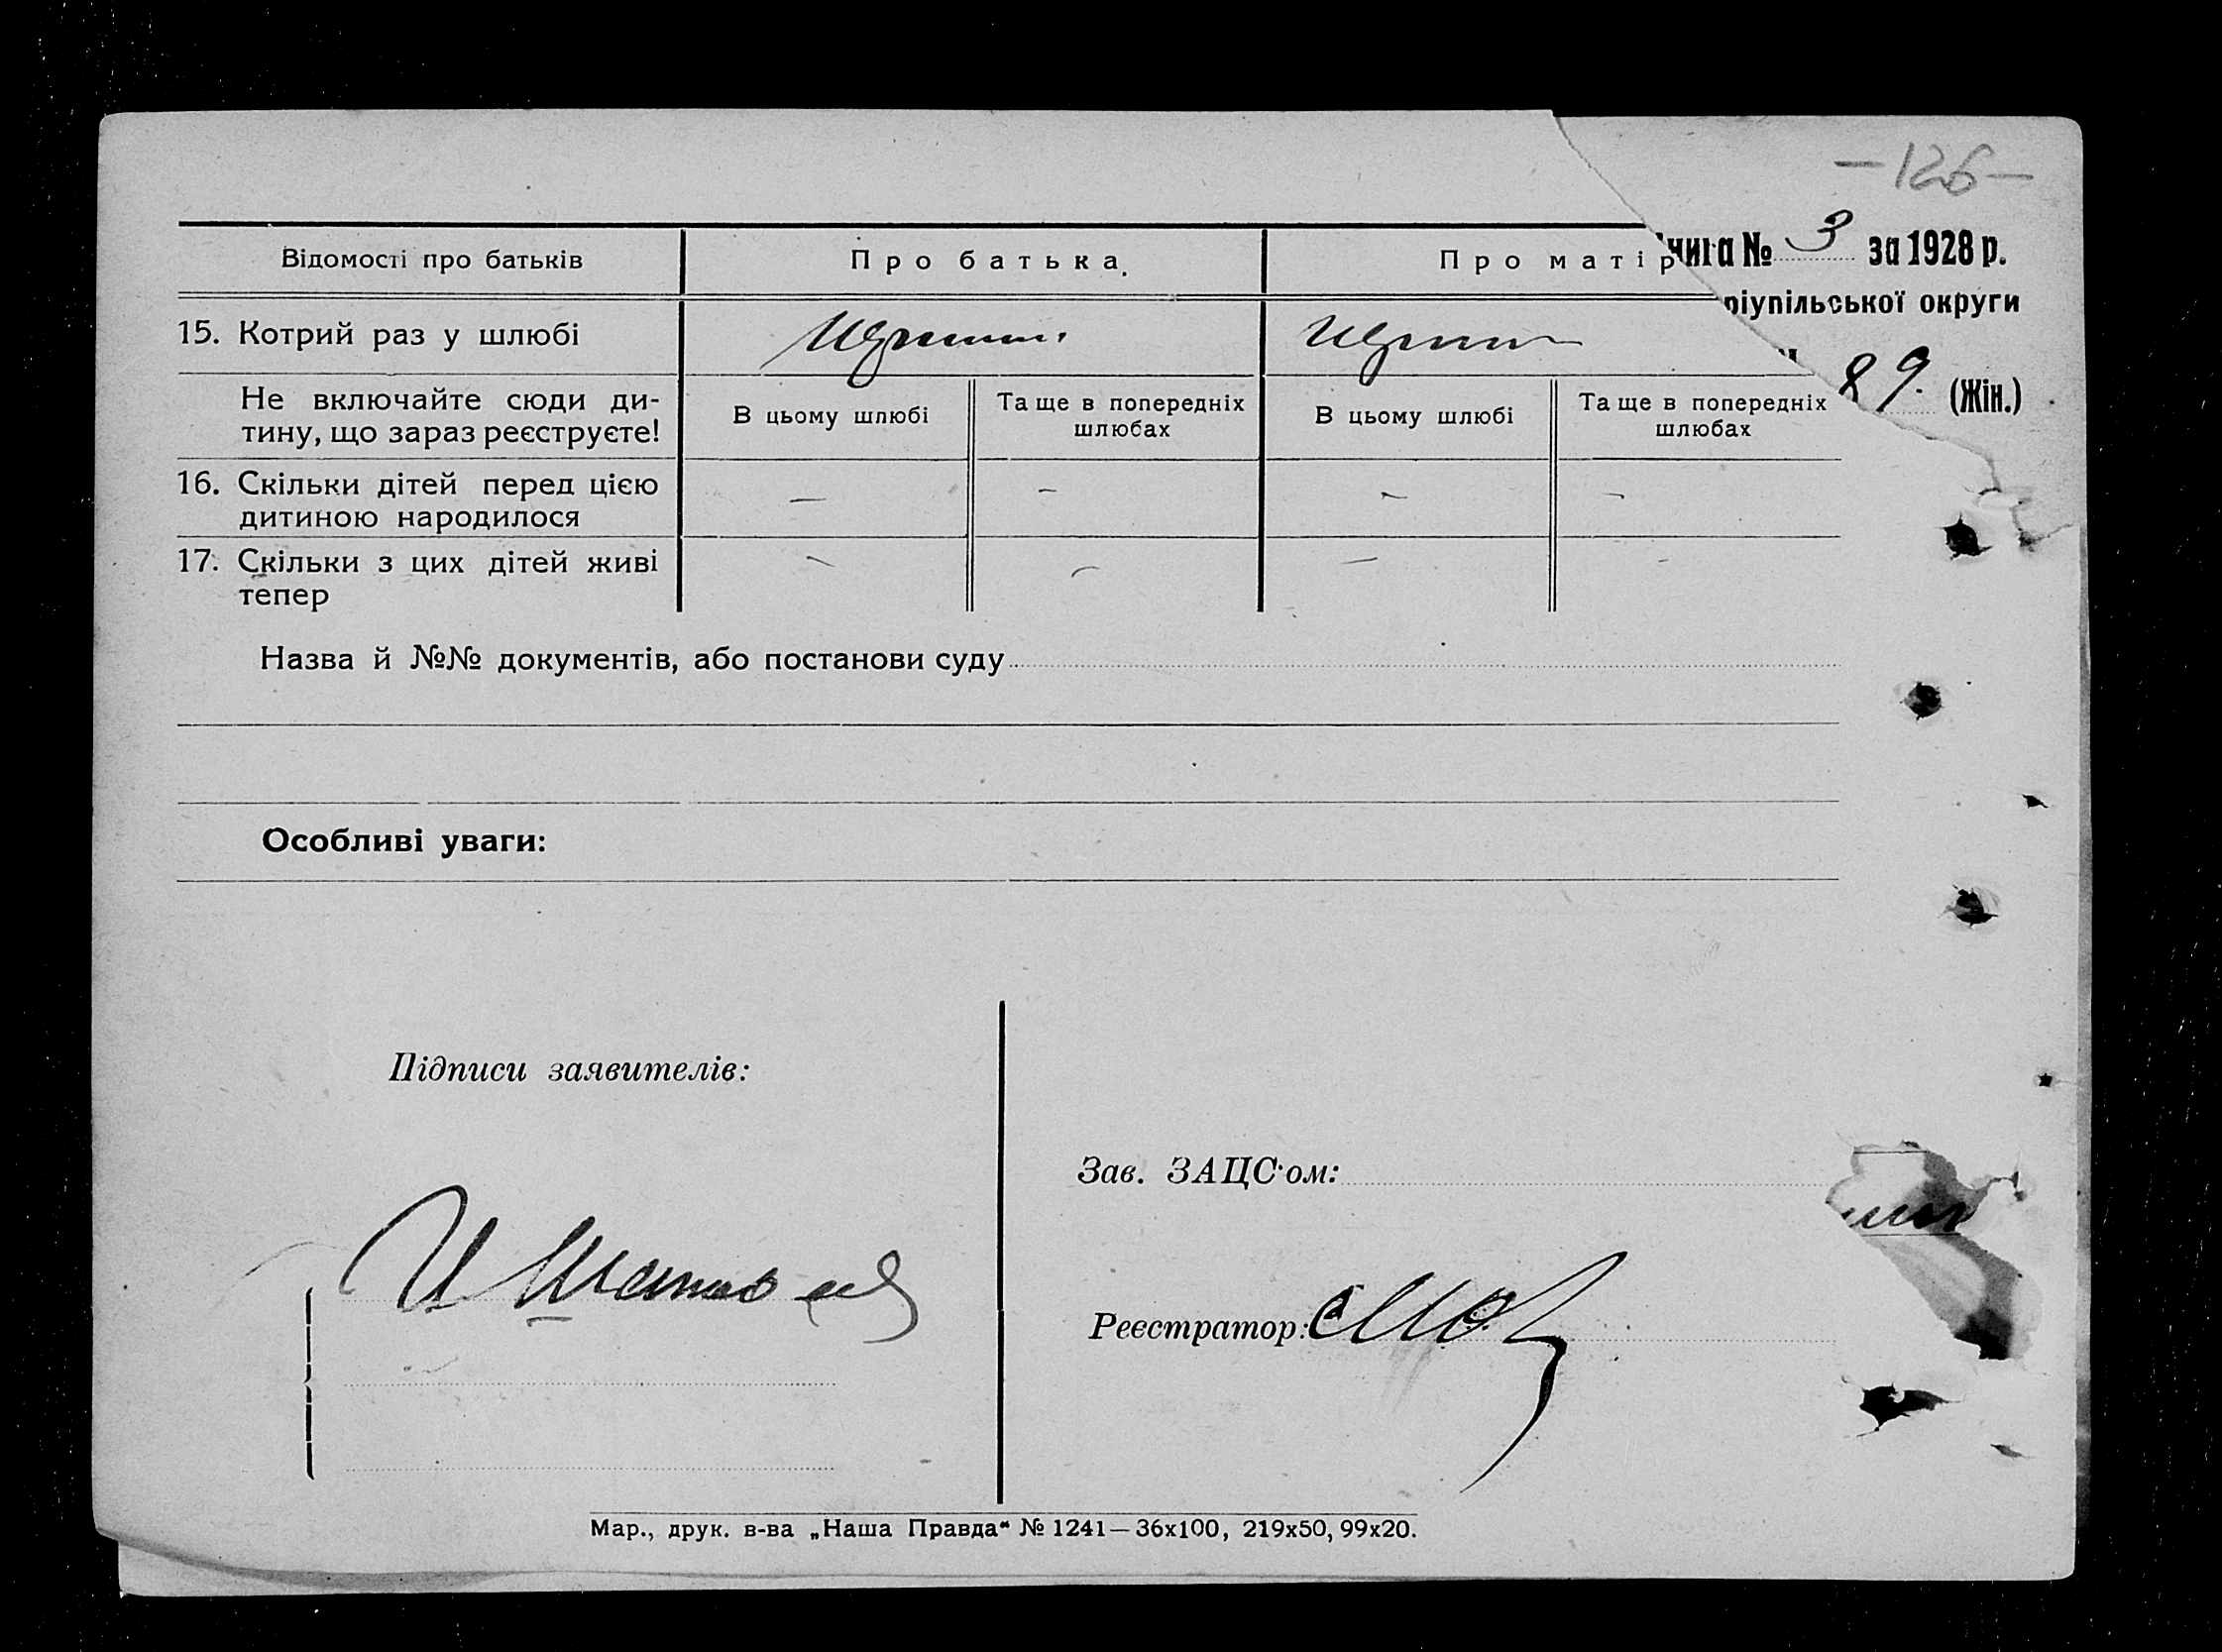 —126—
Відомості про батьків
Про батька.
Про матір
нига № 3 за 1928 р.
ріупільської округи
89. (Жін.)
15. Котрий раз у шлюбі
Не включайте сюди ди-
тину, що зараз реєструєте!
В цьому шлюбі
Та ще в попередніх
шлюбах
В цьому шлюбі
Та ще в попередніх
шлюбах
16. Скільки дітей перед цією
дитиною народилося
— – – –
17. Скільки з цих дітей живі
тепер
– – – –
Назва й №№ документів, або постанови суду
Особливі уваги:
Підписи заявителів:
Зав. ЗАЦС'ом:
Реєстратор:
Мар., друк. в-ва „Наша Правда“ № 1241—36х100, 219х50, 99х20.